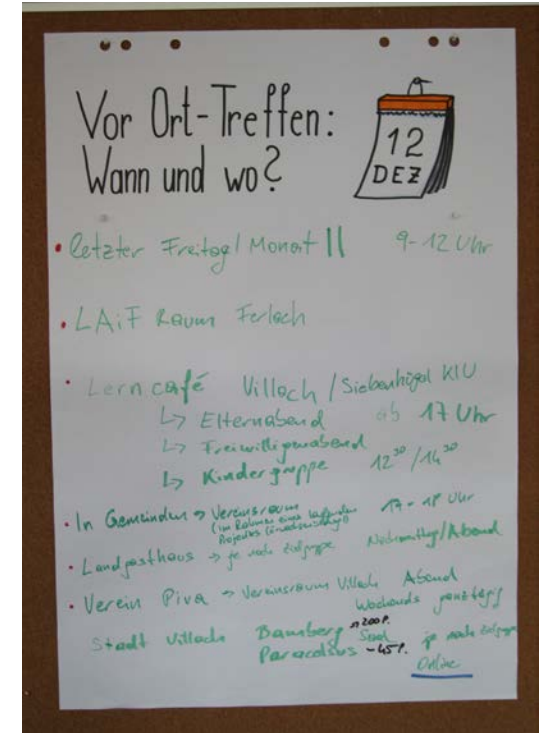 Vor Ort-Treffen:
Wann und wo?
12
DEZ
• letzter Freitag/Monat || 9-12 Uhr
• LAiF Raum Ferlach
• Lerncafé Villach / Siebenhügel KlU
↳ Elternabend ab 17 Uhr
↳ Freiwilligenabend
↳ Kindergruppe 12³⁰/14³⁰
• In Gemeinden → Vereinsraum 17-18 Uhr
(im Rahmen eines laufenden
Projektes
• Landgasthaus → je nach Zielgruppe Nachmittag/Abend
• Verein Piva → Vereinsraum Villach Abend
Wochends ganztägig
Stadt Villach Bamberg Saal 200P.
Paracelsus ~45P. je nach Zielgruppe
Online